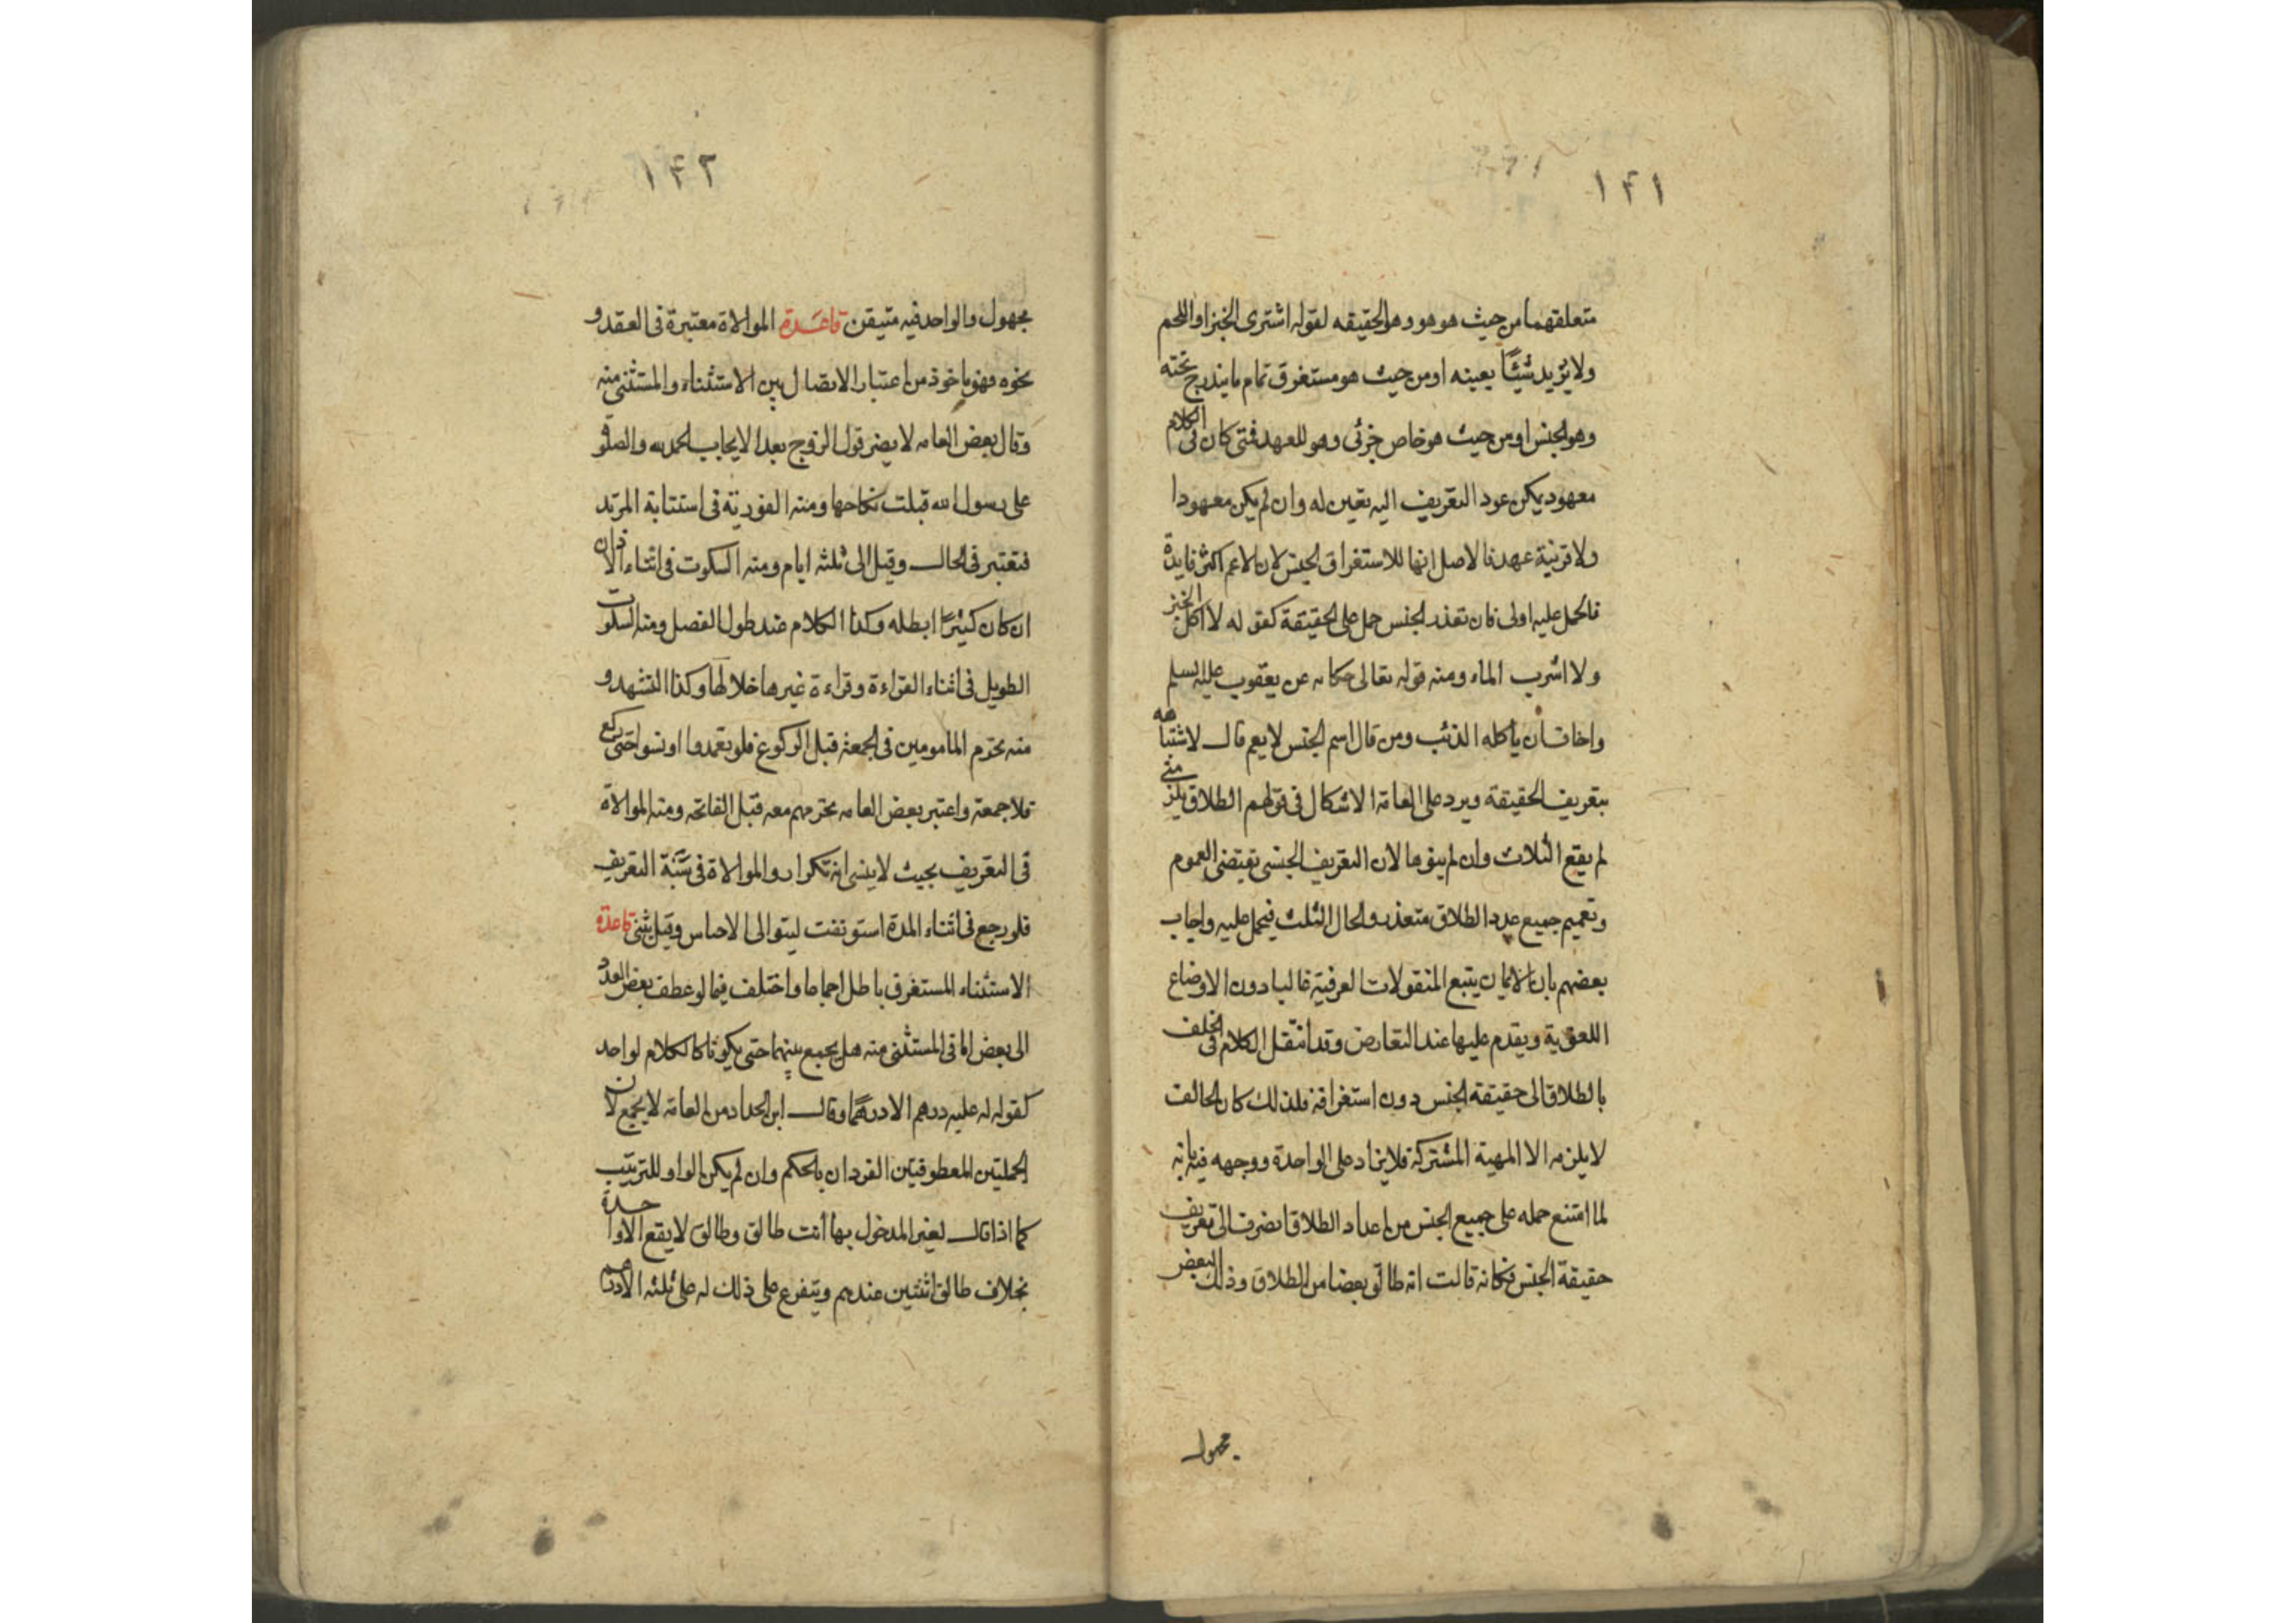 ١٤١
متعلقهما من حيث هو هو وهو الحقيقه لقوله اشترى الخبز او اللحم
ولا يريد شيئًا بعينه او من حيث هو مستغرق تمام ما يندرج تحته
وهو الجنس او من حيث هو خاص جزئى وهو للعهد فمتى كان فى الكلام
معهود يمكن عود التعريف اليه تعين له وان لم يكن معهودا
ولا قرنية عهد فالاصل انها للاستغراق الجنس لان الاعم اكثر فايدة
فالحمل عليه اولى فان تعذر الجنس حمل على الحقيقة كقوله لا اكل الخبز
ولا اشرب الماء ومنه قوله تعالى حكاىه عن يعقوب عليه السلم
واخاف ان يأكله الذئب ومن قال اسم الجنس لا يعم قال لاشتباهه
بتعريف الحقيقة ويرد على العامة الاشكال فى قولهم الطلاق يلزمنى
لم يقع الثلاث وان لم ينوها لان التعريف الجنسى تقتضى العموم
وتعميم جميع عدد الطلاق متعذر والحال الثلث فيحمل عليه واجاب
بعضهم بان الايمان يتبع المنقولات العرفية غالبا دون الاوضاع
اللغوية ويقدم عليها عند التعارض وقد انتقل الكلام فى الحلف
بالطلاق الى حقيقة الجنس دون استغراقه فلذلك كان الحالف
لا يلزمه الا المهية المشتركة فلا يزاد على الواحدة ووجهه فيه بانه
لما امتنع حمله على جميع الجنس من اعداد الطلاق انصرف الى تعريف
حقيقة الجنس فكانه قالت انه طالق بعضا من الطلاق وذلك البعض
مجهول
١٤٢
مجهول والواحد فيه متيقن قاعدة الموالاة معتبرة فى العقد و
نحوه فهو ماخوذ من اعتبار الاتصال بين الاستثناء والمستثنى منه
وقال بعض العامه لا يضر قول الزوج بعد الايجاب الحمد لله والصلوة
على رسول الله قبلت نكاحها ومنه الفورية فى استتابة المرتد
فتعتبر فى الحال وقيل الى ثلثه ايام ومنه السكوت فى اثناء الاذان
ان كان كثيرًا ابطله وكذا الكلام عند طول الفصل ومنه السكوت
الطويل فى اثناء القراءة وقراءة غيرها خلالها وكذا التشهد و
منه تحرم المامومين فى الجمعة قبل الركوع فلو تعمدوا او نسوا حتى ركع
فلا جمعة واعتبر بعض العامه تحرمهم معه قبل الفاتحه ومنه الموالاة
فى التعريف بحيث لا ينسى انه تكرار والموالاة فى سَنَة التعريف
فلو رجع فى اثناء المدة استونفت ليتوالى الاحساس وقيل يثنى قاعدة
الاستثناء المستغرق باطل اجماعا واختلف فيما لو عطف بعض العدد
الى بعض اما فى المستثنى منه هل يجمع بينهما حتى يكونا كالكلام لواحد
كقوله له عليه درهم الا درهمًا وقال ابن الحداد من العامة لا يجمع لان
الجملتين المعطوفتين الفردان بالحكم وان لم يكن الواو للترتيب
كما اذا قال لغير المدخول بها أنت طالق وطالق لا يقع الا واحدة
بخلاف طالق اثنتين عندهم ويتفرع على ذلك له على ثلثه الا درهم